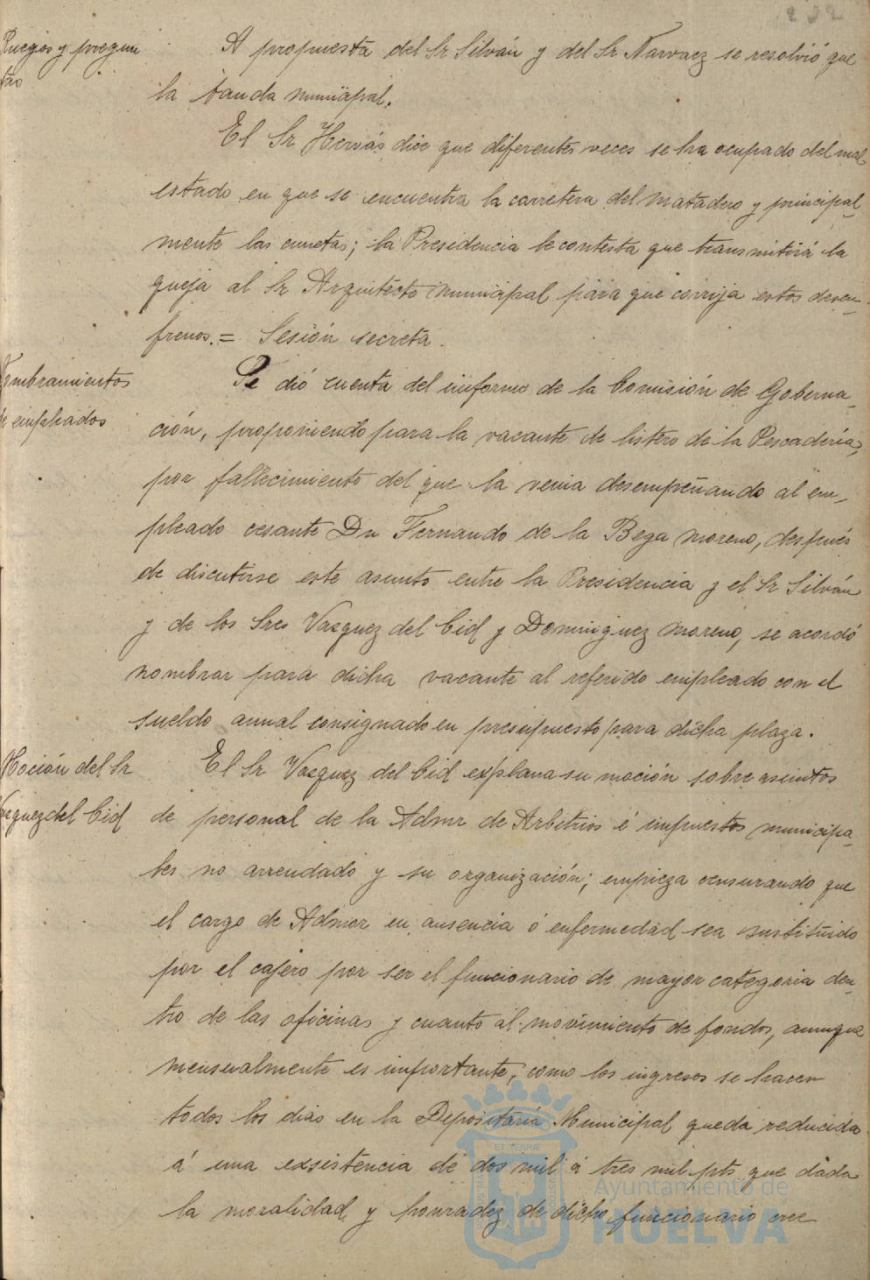 232
Ruegos y pregun
tas
A propuesta del Sr Silván y del Sr Narvaez se resolvió que
la banda municipal.
El Sr Hervás dice que diferentes veces se ha ocupado del mal
estado en que se encuentra la carretera del matadero y principal-
mente las cunetas; la Presidencia le contesta que transmitirá la
queja al Sr Arquitecto municipal para que corrija estos desen-
frenos. = Sesión secreta.
Nombramientos
de empleados
Se dió cuenta del informe de la Comisión de Goberna-
ción, proponiendo para la vacante de listero de la Pescadería,
por fallecimiento del que la venia desempeñando al em-
pleado cesante Dn Fernando de la Bega Moreno, después
de discutirse este asunto entre la Presidencia y el Sr Silván
y de los Sres Vazquez del Cid y Dominguez Moreno, se acordó
nombrar para dicha vacante al referido empleado con el
sueldo anual consignado en presupuesto para dicha plaza.
Moción del Sr
Vazquez del Cid
El Sr Vazquez del Cid explana su moción sobre asuntos
de personal de la Admr de Arbitrios é impuestos municipa-
les no arrendado y su organización; empieza censurando que
el cargo de Admor en ausencia ó enfermedad sea sustituido
por el cajero por ser el funcionario de mayor categoria den-
tro de las oficinas y cuanto al movimiento de fondos, aunque
mensualmente es importante, como los ingresos se hacen
todos los dias en la Depositaría Municipal queda reducida
á una exsistencia de dos mil á tres mil pts que dada
la moralidad y honradez de dicho funcionario cree
Ayuntamiento de
HUELVA